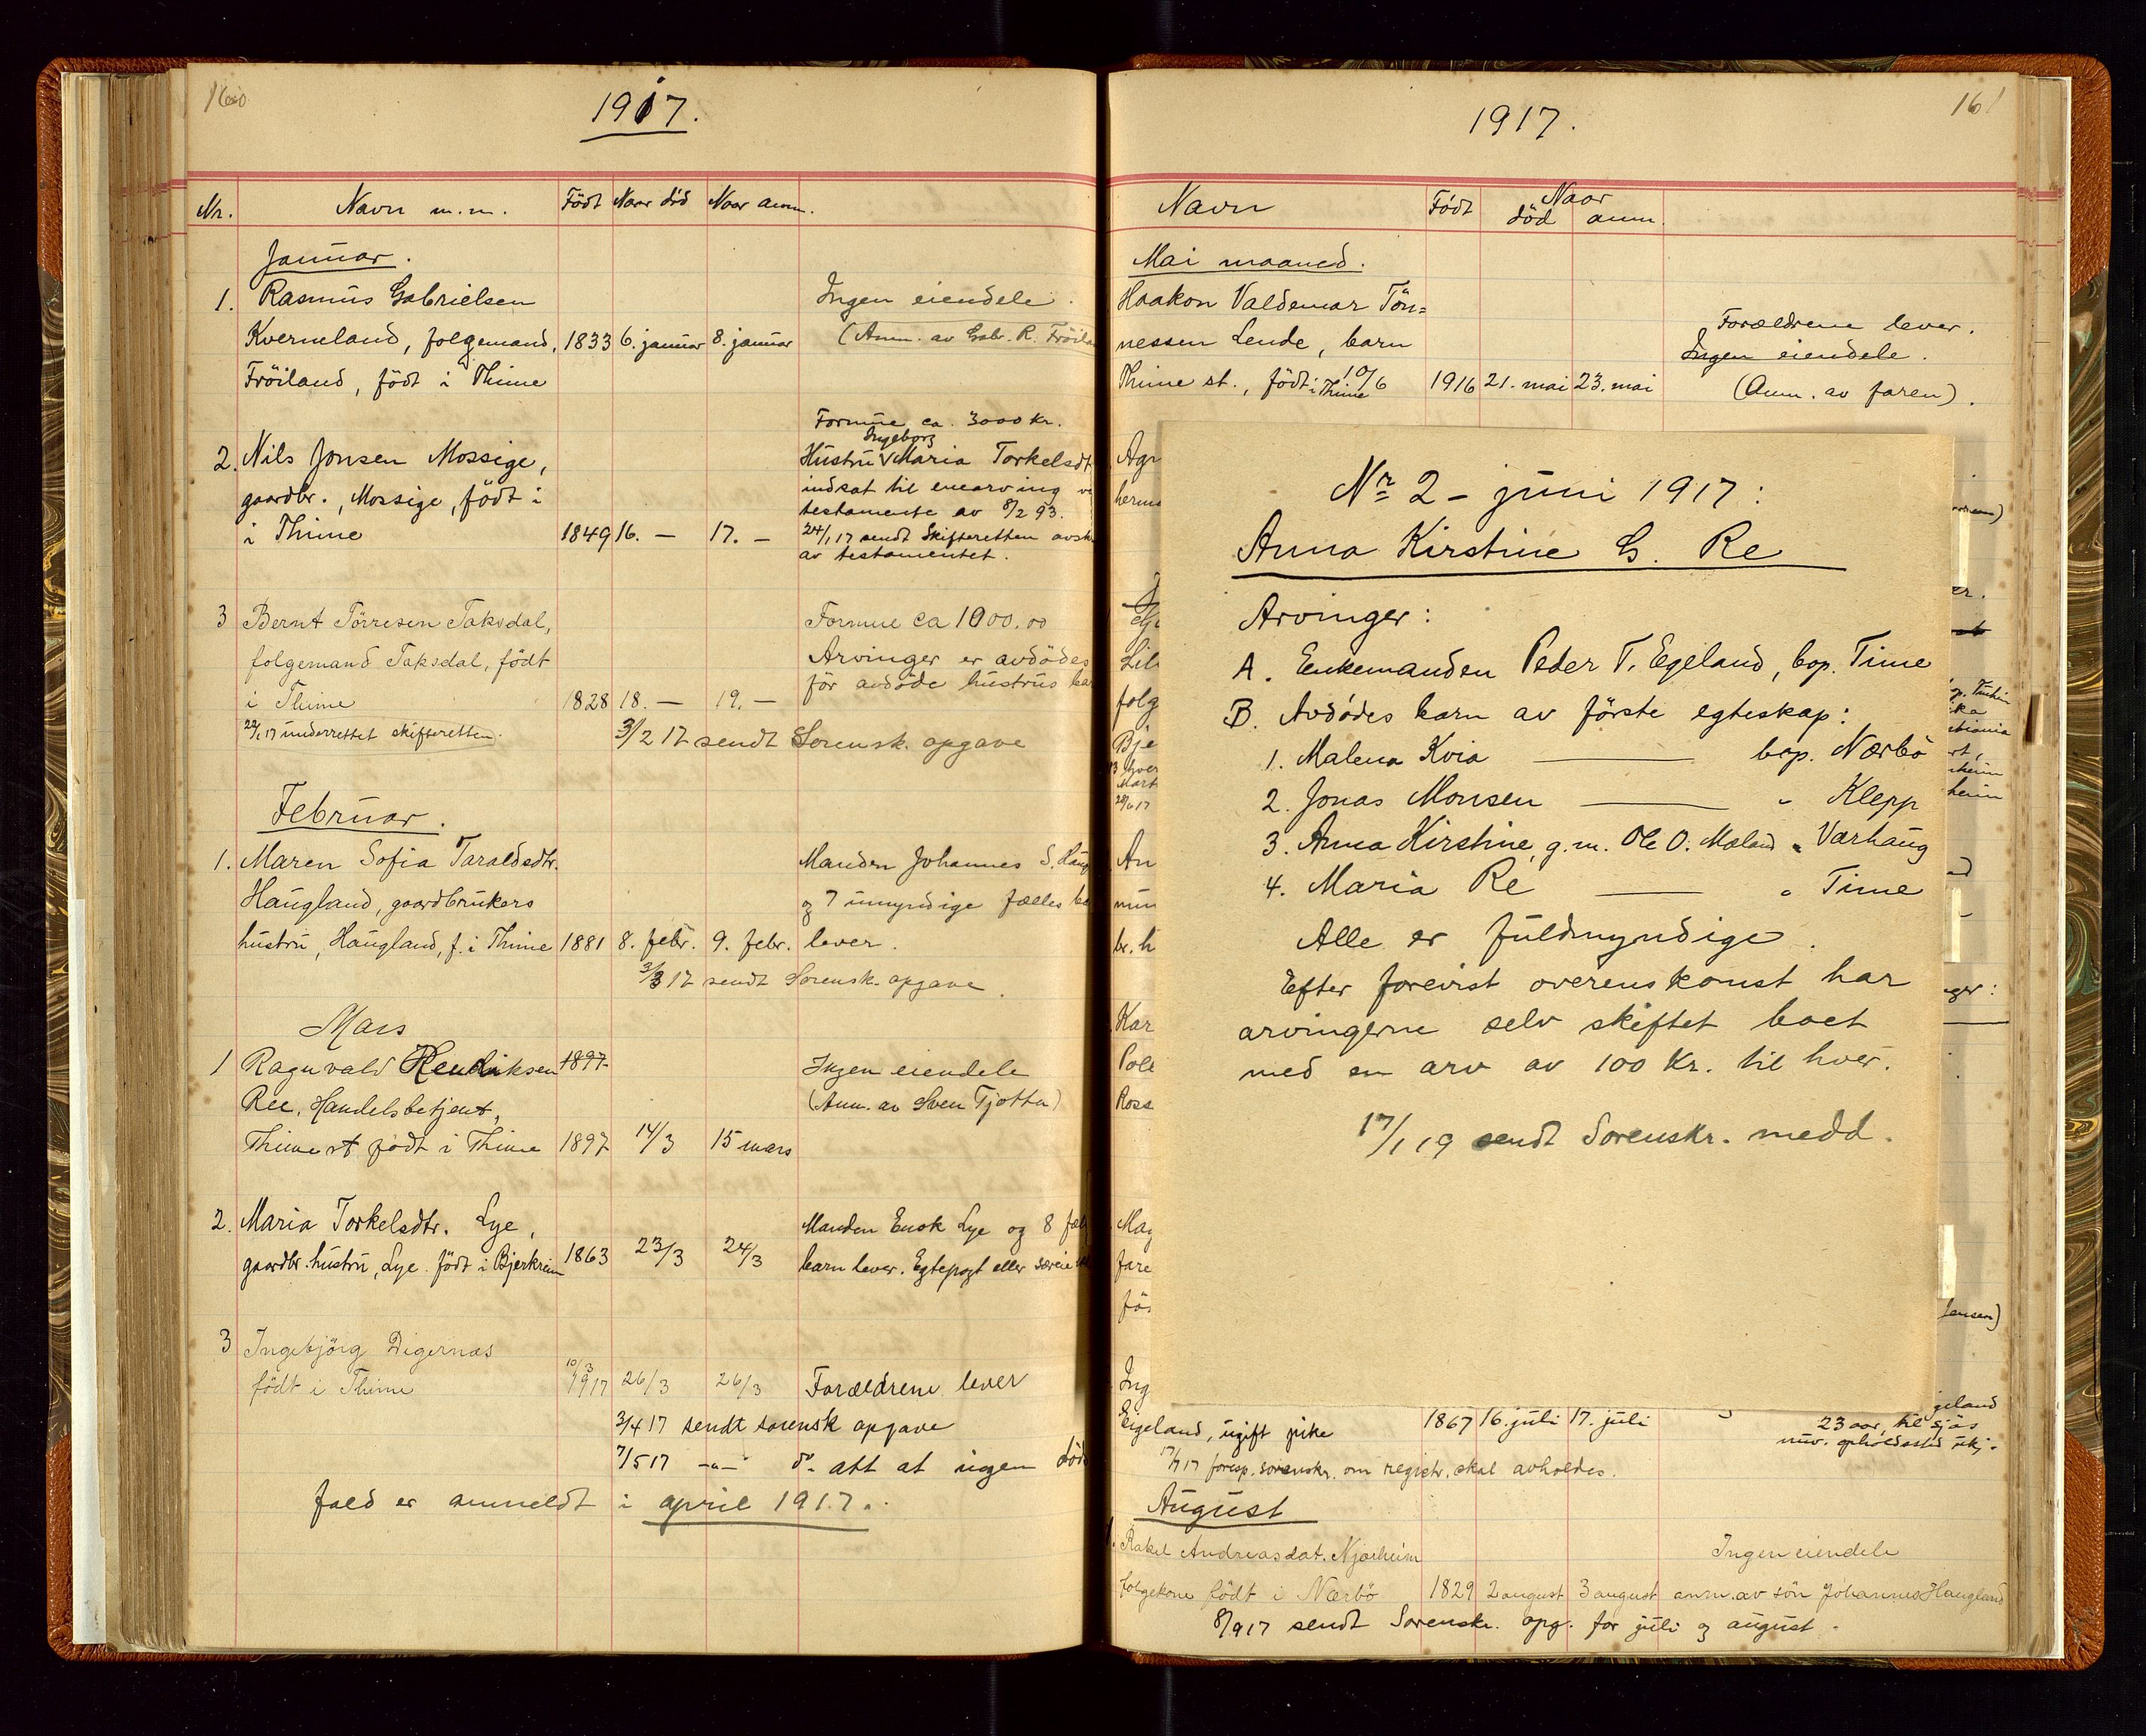 160
1917.
Nr. Navn m.m. Födt Naar död Naar anm.
Januar.
1. Rasmus Gabrielsen Ingen eiendele.
Kverneland, folgemand, 1833 6. januar 8. januar (Anm. av Gabr. R. Fröila
Fröiland, födt i Thime
Formue ca. 3000 kr.
Ingeborg
2. Nils Jonsen Mossige, Hustru V Maria Torkelsdt
gaardbr., Mossige, födt i indsat til enearving v
testamente av 8/2 93.
i Thime 1849 16. — 17. — 24/1 17 sendt Skifteretten avsk
av testamentet.
3 Bernt Törresen Taksdal, Formue ca 1000.00
folgemand Taksdal, födt Arvinger er avdödes
för avdöde hustrus bar
i Thime 1828 18. — 19. —
22/1 17 underrettet skifteretten. 3/2 17 sendt Sorensk. opgave
Februar.
1. Maren Sofia Taraldsdtr. Manden Johannes S. Haug
Haugland, gaardbrukers og 7 umyndige fælles ba
hustru, Haugland, f. i Thime 1881 8. febr. 9. febr. lever.
3/3 17 sendt Sorensk. opgave.
Mars
1 Ragnvald Hendriksen 1897 Ingen eiendele
Ree, Handelsbetjent, (Anm. av Sven Tjotta)
Thime st födt i Thime 1897 14/3 15 mars
2. Maria Torkelsdtr. Lye, Manden Enok Lye og 8 fæl
gaardbr. hustru, Lye. födt i Bjerkreim 1863 23/3 24/3 barn lever. Egtepagt eller særeie
3 Ingebjörg Digernæs
födt i Thime 10/3 1917 26/3 26/3 Forældrene lever
3/4 17 sendt sorensk opgave
7/5 17 -"- do- att at ingen död
fald er anmeldt i april 1917.
161
1917.
Navn Födt Naar
död anm.
Mai maaned.
Haakon Valdemar Tön=
nessen Lende, barn Forældrene lever.
Ingen eiendele.
Thime st., födt i Thime 10/6 1916 21. mai 23. mai (Anm. av faren).
No 2 - juni 1917:
Anna Kirstine G. Re
Arvinger:
A. Enkemanden Peder T. Egeland, bop. Time
B. Avdödes barn av förste egteskap:
1. Malena Kvia — bop. Nærbö
2. Jonas Monsen — " Klepp
3. Anna Kirstine, g.m. Ole O. Mæland " Varhaug
4. Maria Re — " Time
Alle er fuldmyndige.
Efter forevist overenskomst har
arvingerne selv skiftet boet
med en arv av 100 Kr. til hver.
17/1 19 sendt Sorenskr. medd.
Agr
herm
Lil
folg
Bje
An
mün
br. h
Kar
Pole
Ross
Mag
fare
fös
Ing
Jensen)
geland
Eigeland, ugift pike 1867 16. juli 17. juli 23 aar, til sjøs
nuv. opholdssted ukj.
17/7 17 foresp. sorenskr. om registr. skal avholdes.
August
1. Rakel Andreasdat. Njærheim Ingen eiendele
folgekone födt i Nærbö 1829 2 august 3 august anm. av sön Johannes Haugland
8/9 17 sendt Sorenskr. opg. for juli og august.